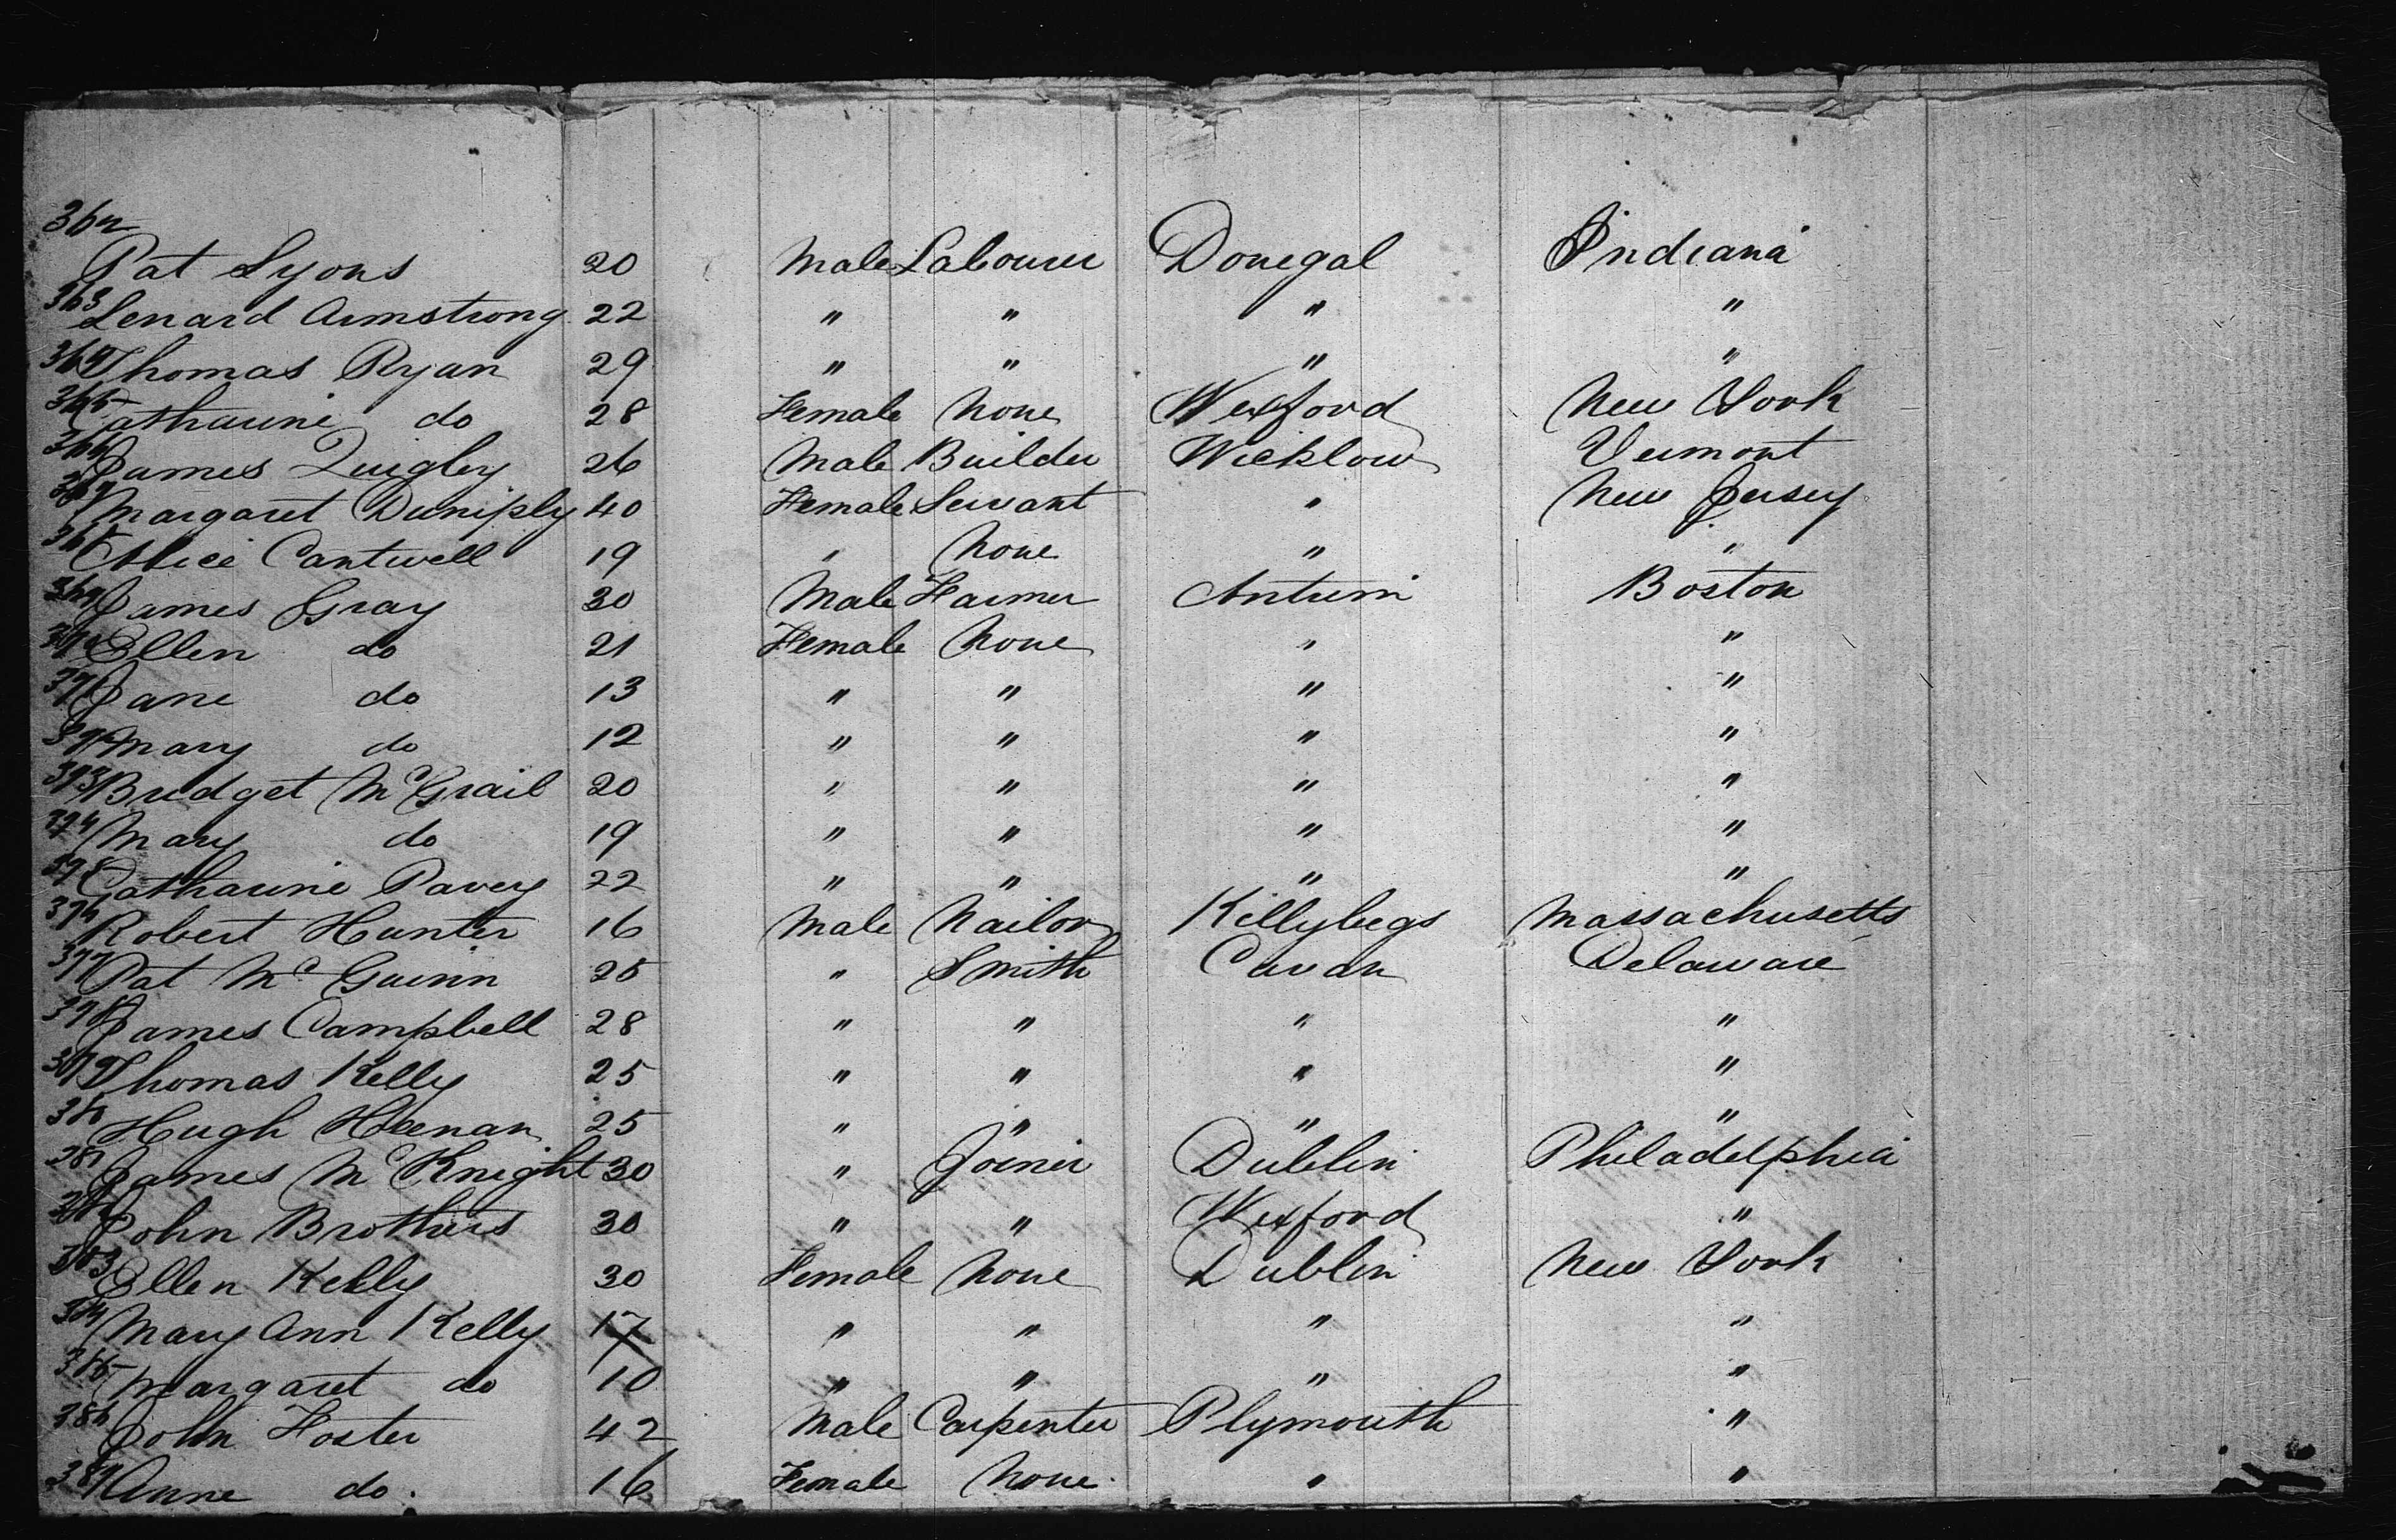 362
Pat Lyons 20 Male Labourer Donegal Indiana
363 Lenard Armstrong 22 " " " "
364 Thomas Ryan 29 " " " "
365 Catharine do 28 Female None Wexford New York
366 James Quigley 26 Male Builder Wicklow Vermont
367 Margaret Duniply 40 Female Servant " New Jersey
368 Alice Cantwell 19 " None " "
369 James Gray 30 Male Farmer Antrim Boston
370 Ellen do 21 Female None " "
371 Jane do 13 " " " "
372 Mary do 12 " " " "
373 Bridget McGrail 20 " " " "
374 Mary do 19 " " " "
375 Catharine Pavey 22 " " " "
376 Robert Hunter 16 Male Nailor Killybegs Massachusetts
377 Pat Mc Guinn 25 " Smith Cavan Delaware
378 James Campbell 28 " " " "
379 Thomas Kelly 25 " " " "
380 Hugh Heenan 25 " " " "
381 James McKnight 30 " Joiner Dublin Philadelphia
382 John Brothers 30 " " Wexford "
383 Ellen Kelly 30 Female None Dublin New York
384 Mary Ann Kelly 17 " " " "
385 Margaret do 10 " " " "
386 John Foster 42 Male Carpenter Plymouth "
387 Anne do. 16 Female None. " "